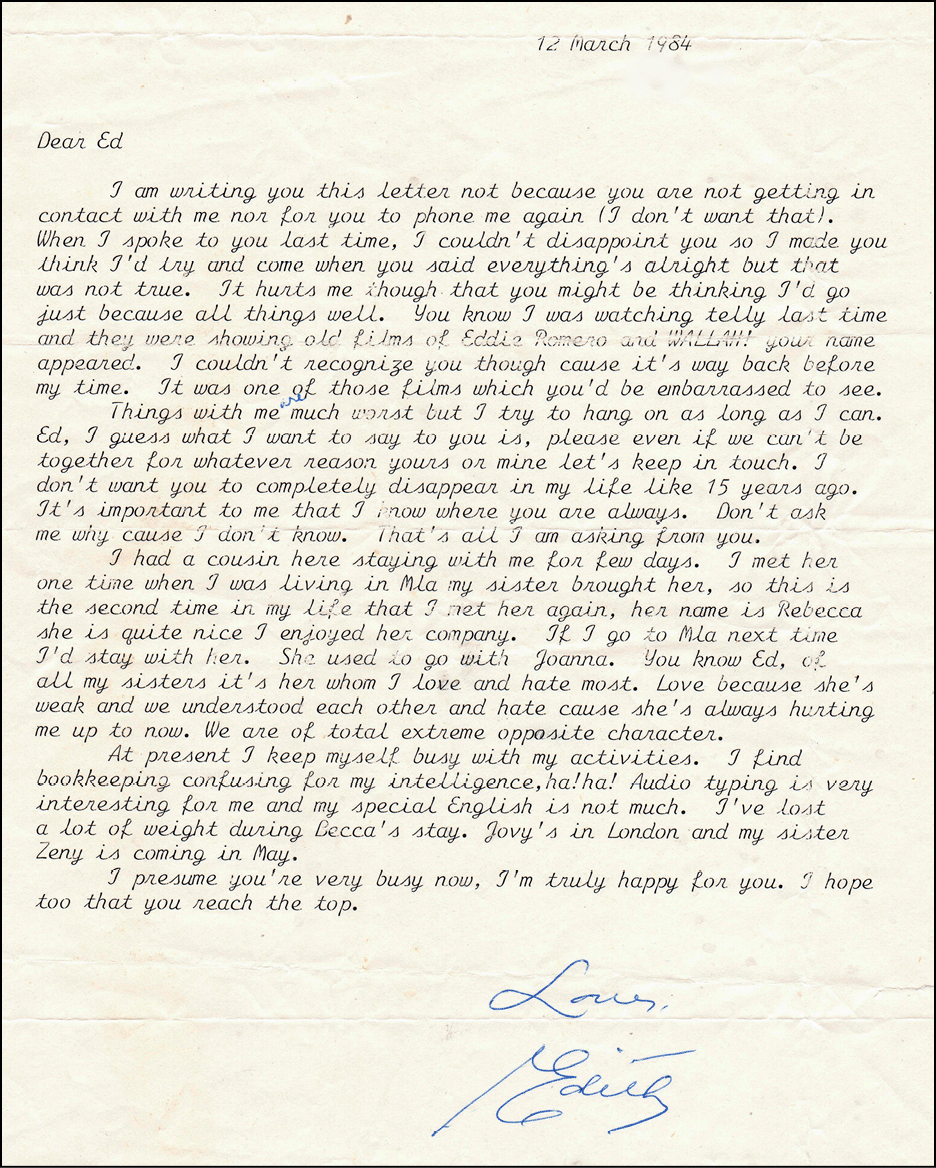 12 March 1984
Dear Ed
I am writing you this letter not because you are not getting in
contact with me nor for you to phone me again (I don't want that).
When I spoke to you last time, I couldn't disappoint you so I made you
think I'd try and come when you said everything's alright but that
was not true. It hurts me though that you might be thinking I'd go
just because all things well. You know I was watching telly last time
and they were showing old films of Eddie Romero and WALLAH! your name
appeared. I couldn't recognize you though cause it's way back before
my time. It was one of those films which you'd be embarrassed to see.
Things with me are much worst but I try to hang on as long as I can.
Ed, I guess what I want to say to you is, please even if we can't be
together for whatever reason yours or mine let's keep in touch. I
don't want you to completely disappear in my life like 15 years ago.
It's important to me that I know where you are always. Don't ask
me why cause I don't know. That's all I am asking from you.
I had a cousin here staying with me for few days. I met her
one time when I was living in Mla my sister brought her, so this is
the second time in my life that I met her again, her name is Rebecca
she is quite nice I enjoyed her company. If I go to Mla next time
I'd stay with her. She used to go with Joanna. You know Ed, of
all my sisters it's her whom I love and hate most. Love because she's
weak and we understood each other and hate cause she's always hurting
me up to now. We are of total extreme opposite character.
At present I keep myself busy with my activities. I find
bookkeeping confusing for my intelligence,ha!ha! Audio typing is very
interesting for me and my special English is not much. I've lost
a lot of weight during Becca's stay. Jovy's in London and my sister
Zeny is coming in May.
I presume you're very busy now, I'm truly happy for you. I hope
too that you reach the top.
Love,
Edith